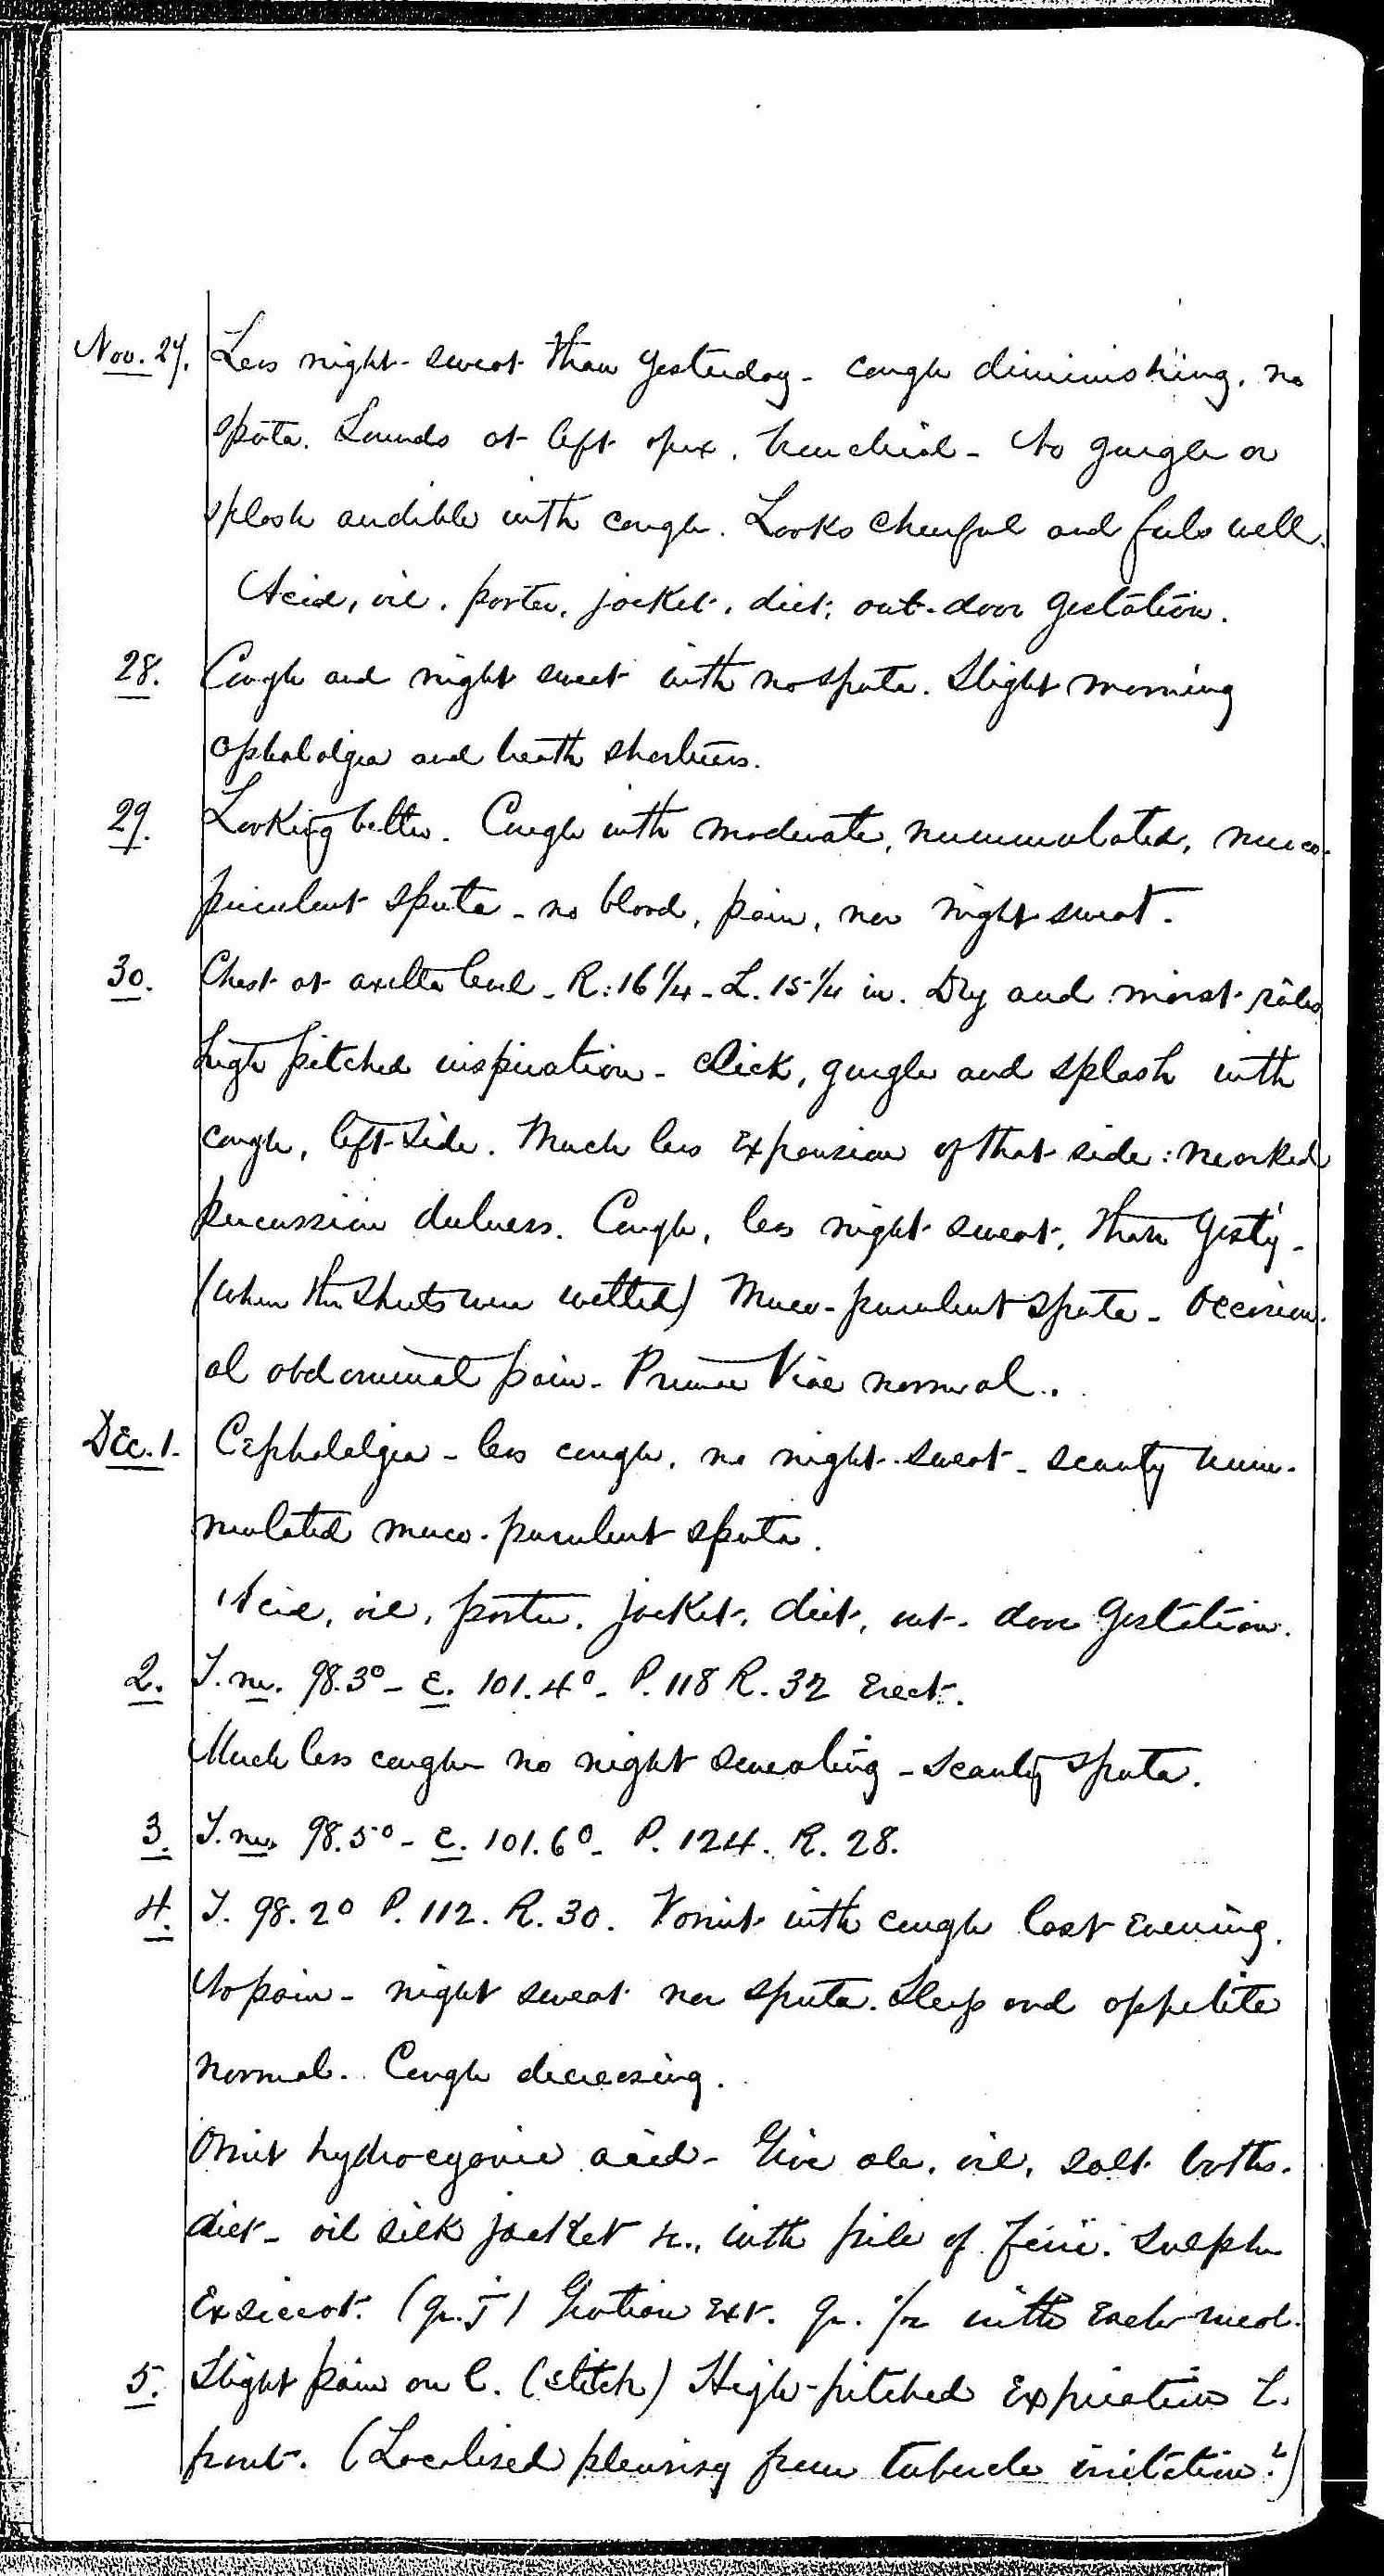 Nov. 27. Less night-sweat than yesterday - cough diminishing, no
sputa. Sounds at left apex, bronchial - No gurgle or
splash audible with cough. Looks cheerful and feels well.
Acid, oil, porter, jacket, diet, out-door gestation.
28. Cough and night sweat with no sputa. Slight morning
cephalalgia and breath shortness.
29. Looking better. Cough with moderate, nummulated, muco-
purulent sputa - no blood, pain, nor night sweat.
30. Chest at axilla level - R: 16 1/4 - L. 15 1/4 in. Dry and moist râles
high pitched inspiration - click, gurgle and splash with
cough, left side. Much less expansion of that side: marked
percussion dulness. Cough, less night sweat, than yest'y -
(when the sheets were wetted) Muco-purulent sputa - occasion-
al abdominal pain - Primæ Viæ normal.
Dec. 1. Cephalalgia - less cough, no night-sweat - scanty num-
mulated muco-purulent sputa.
Acid, oil, porter, jacket, diet, out-door gestation.
2. T. m. 98.3° - e. 101.4° - P. 118 R. 32 Erect.
Much less cough - no night sweating - scanty sputa.
3. T. m. 98.5° - e. 101.6° - P. 124. R. 28.
4. T. 98.2° P. 112. R. 30. Vomit with cough last evening.
No pain - night sweat nor sputa. Sleep and appetite
normal. Cough decreasing.
Omit hydrocyanic acid - Give ale, oil, salt baths.
diet - oil silk jacket &c., with pile of Ferri. Sulph
Exsiccat. (gr. j) Gentian Ext. gr. 1/2 with each meal.
5. Slight pain on l. (stitch) High-pitched expiration L.
front. (Localised pleurisy from tubercle irritation?)